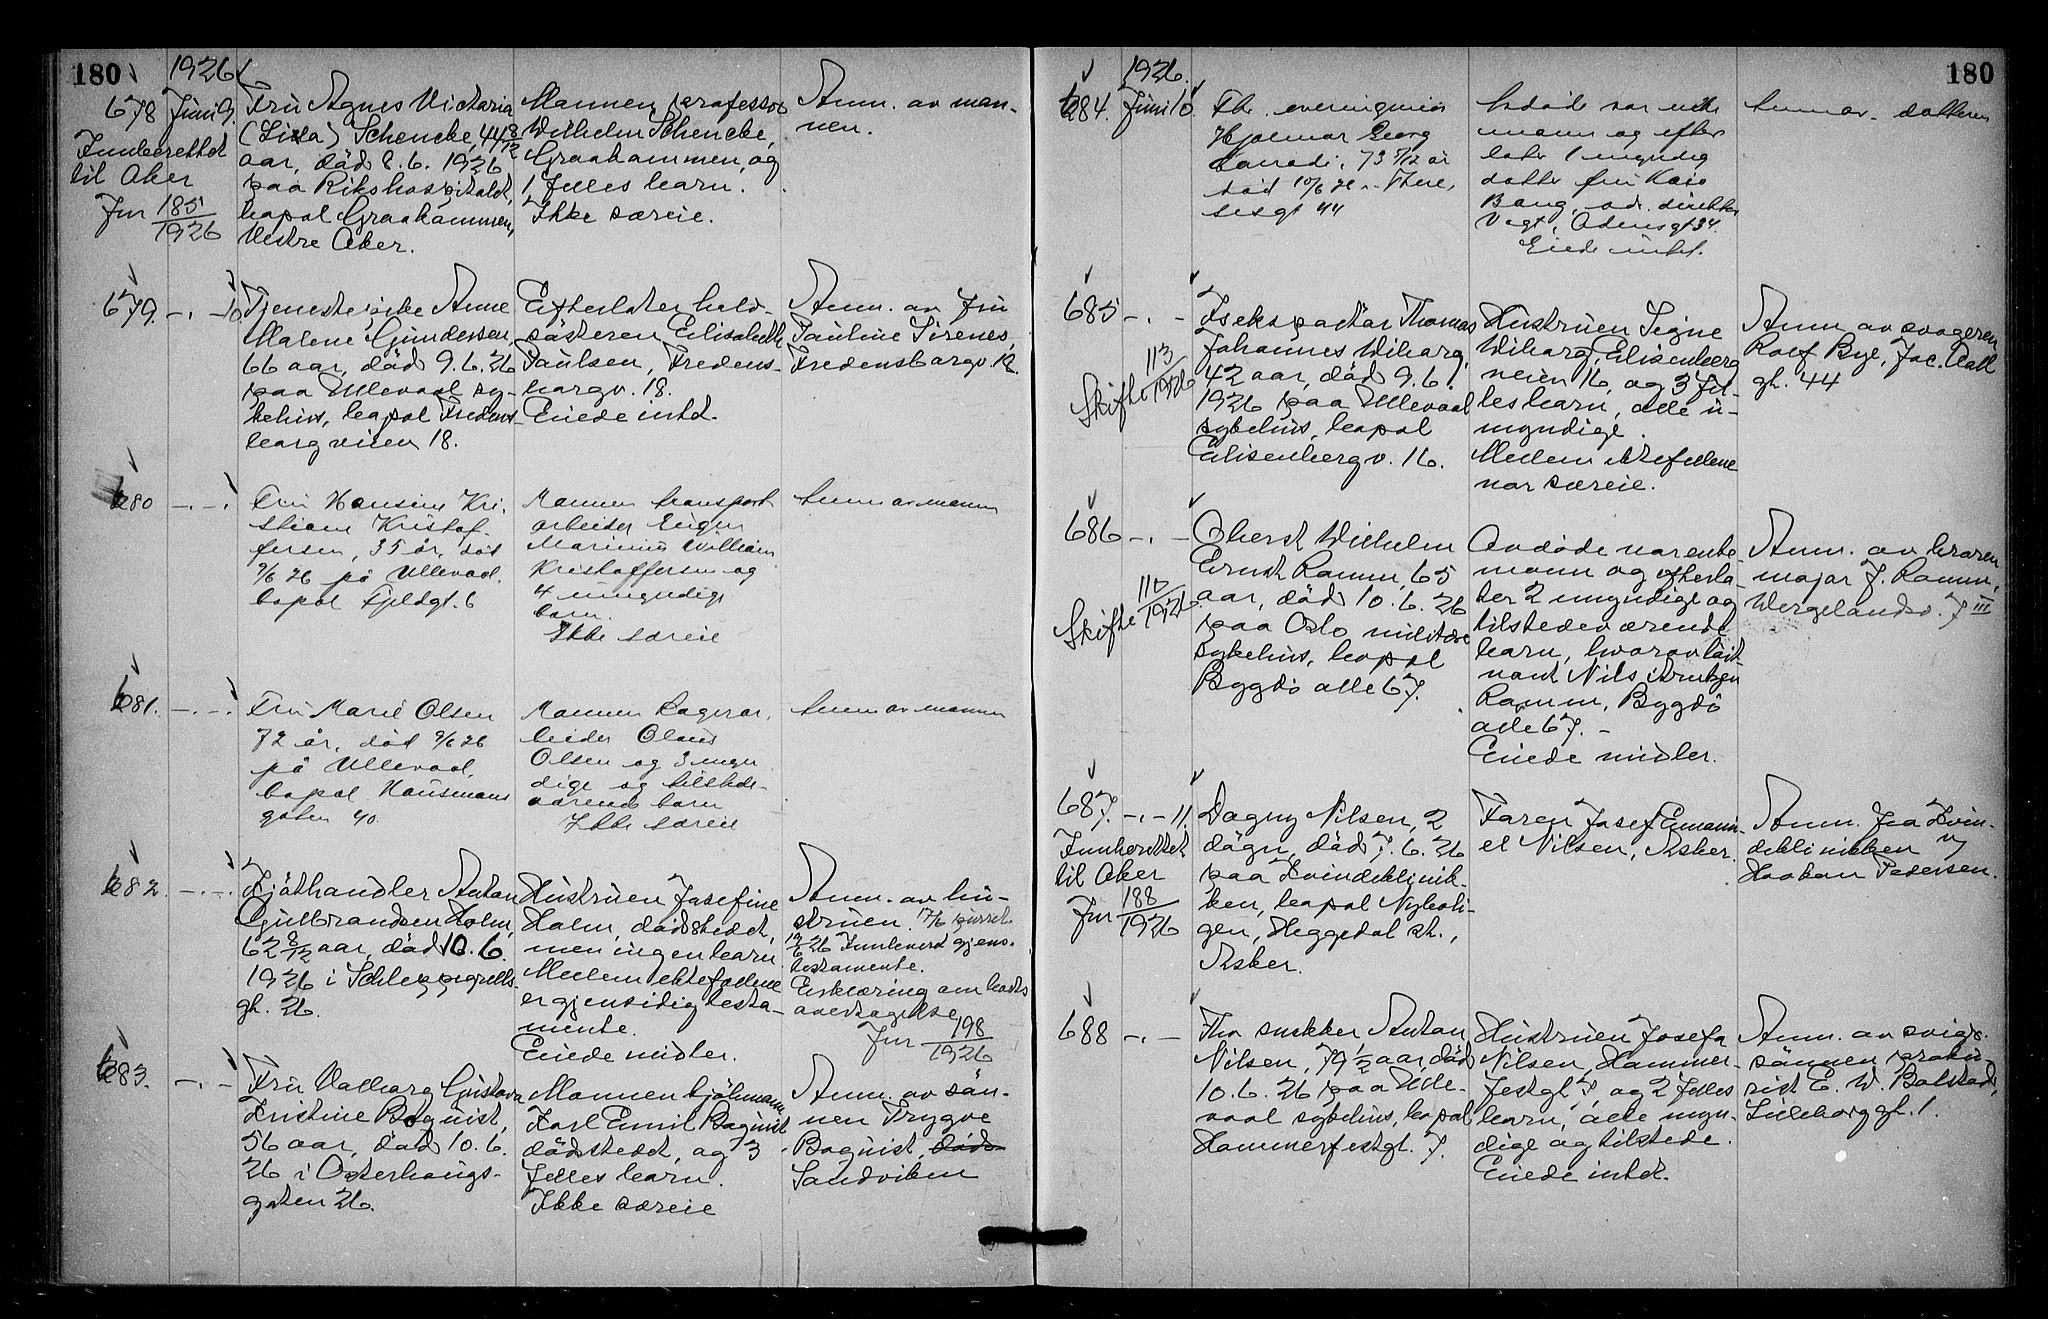 180
1926
678 Juni 9.
Innberettet
til Aker
Jnr 185/1926
Fru Agnes Victoria
Schencke, 44 8/12
aar, död 8.6. 1926
paa Rikshospitalet,
bopæl Graakammen,
Vestre Aker.
Mannen professor
Wilhelm Schencke,
Graakammen, og
1 felles barn.
Ikke særeie.
Anm. av man-
nen.
679. -.- 10
Tjenestepike Anne
Malene Gundersen,
66 aar, död 9.6.26
paa Ullevaal sy-
kehus, bopæl Fredens-
borgveien 18.
Efterlater hel-
søsteren Elisabeth
Paulsen, Fredens-
borgv. 18.
Eiede intet.
Anm. av fru
Pauline Sirenes,
Fredensborgv. 18.
680 -.-.
Fru Hansine Kri-
stiane Kristof-
fersen, 35 år, död
9/6 26 på Ullevaal.
bopæl Fjeldgt. 6
Mannen transport
arbeider
Marinius William
Kristoffersen og
4 umyndige
barn.
Ikke særeie
Anm av mannen
681. -.-.
Fru Marie Olsen
72 år, död 9/6 26
på Ullevaal,
bopæl Hausmanns
gaten 40.
Mannen Lagerar-
beider Olaus
Olsen og 3 myn
dige og tilstede-
værende barn
Ikke særeie
Anm av mannen
682. -.-.
Kjöthandler Anton
Gulbrandsen Holm,
62 8/12 aar, död 10.6.
1926 i Schleppegrells-
gt. 26.
Hustruen Josefine
Holm, dödstedet,
men ingen barn
Mellem ektefellene
er gjensidig testa-
mente.
Eiede midler.
Anm. av hu-
struen.
Innlevert gjens.
testamente.
Erklæring om boets
overtagelse
Jnr 198/1926
683. -.-
Fru Valborg Gustava
Kristine Boquist,
56 aar, död 10.6.
26 i Osterhaugs-
gaten 26.
Mannen sjömann
Karl Emil Boquist
dödstedet, og 3
felles barn.
Ikke særeie
Anm. av søn-
nen Trygve
Boquist,
Sandviken
180
1926.
684. Juni 10.
Fhv.
Hjalmar Georg
Conradi, 73 7/12 år
död 10/6 26 i There-
sesgt 44
Avdöde var enke
mann og efter
later 1 myndig
datter fru
Bang, adr. direktör
Vogt, Odinsgt 34.
Eiede intet.
Anm av datteren
685 -.-
Skifte 113/1926
Iseksportør Thomas
Johannes Wiborg,
42 aar, död 9.6.
1926 paa Ullevaal
sykehus, bopæl
Elisenbergv. 16.
Hustruen Signe
Wiborg, Elisenberg
veien 16, og 3 fel-
les barn, alle u-
myndige.
Mellem ektefellene
var særeie.
Anm av svogeren
Rolf Bye, Jac. Aall
gt. 44
686 -.-
Skifte 110/1926
Oberst Wilhelm
Ernst Ramm, 65
aar, död 10.6.26
paa Oslo militære
sykehus, bopæl
Bygdö alle 67.
Avdöde var enke-
mann og efterla-
ter 2 myndige og
tilstedeværende
barn, hvorav löit-
nant Nils
Ramm, Bygdö
alle 67. -
Eiede midler.
Anm. av broren,
major J. Ramm,
Wergelandsv. 7 III
687. -.- 11.
Innberettet
til Aker
Jnr 188/1926
Dagny Nilsen, 2
dögn, död 7.6.26
paa Kvindeklinik-
ken, bopæl Nyboli-
gen, Heggedal st.,
Asker.
Faren Josef Emanu-
el Nilsen, Asker.
Anm. fra Kvin-
deklinikken v/
Haakon Pedersen.
688 -.-
Fhv snekker Anton
Nilsen, 79 1/2 aar, död
10.6.26 paa Ulle-
vaal sykehus, bopæl
Hammerfestgt. 7.
Hustruen Josefa
Nilsen, Hammer-
festgt 7, og 2 felles
barn, alle myn-
dige og tilstede.
Eiede intet.
Anm. av svige-
sönnen proku-
rist E. W. Bolstad,
Lilleborggt. 1.